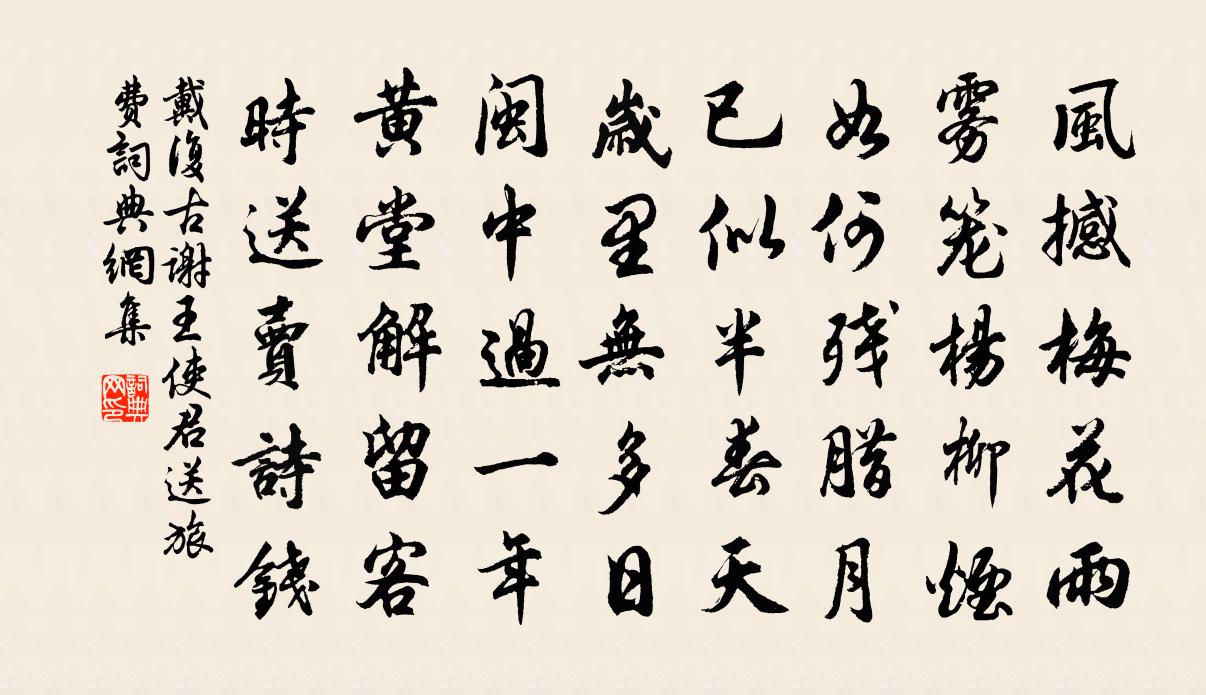 風撼梅花雨
雾笼楊柳煙
如何残腊月
已似半春天
歲里無多日
閩中過一年
黄堂解留客
時送賣詩錢
戴復古謝王使君送旅
費詞典網集
詞典网印